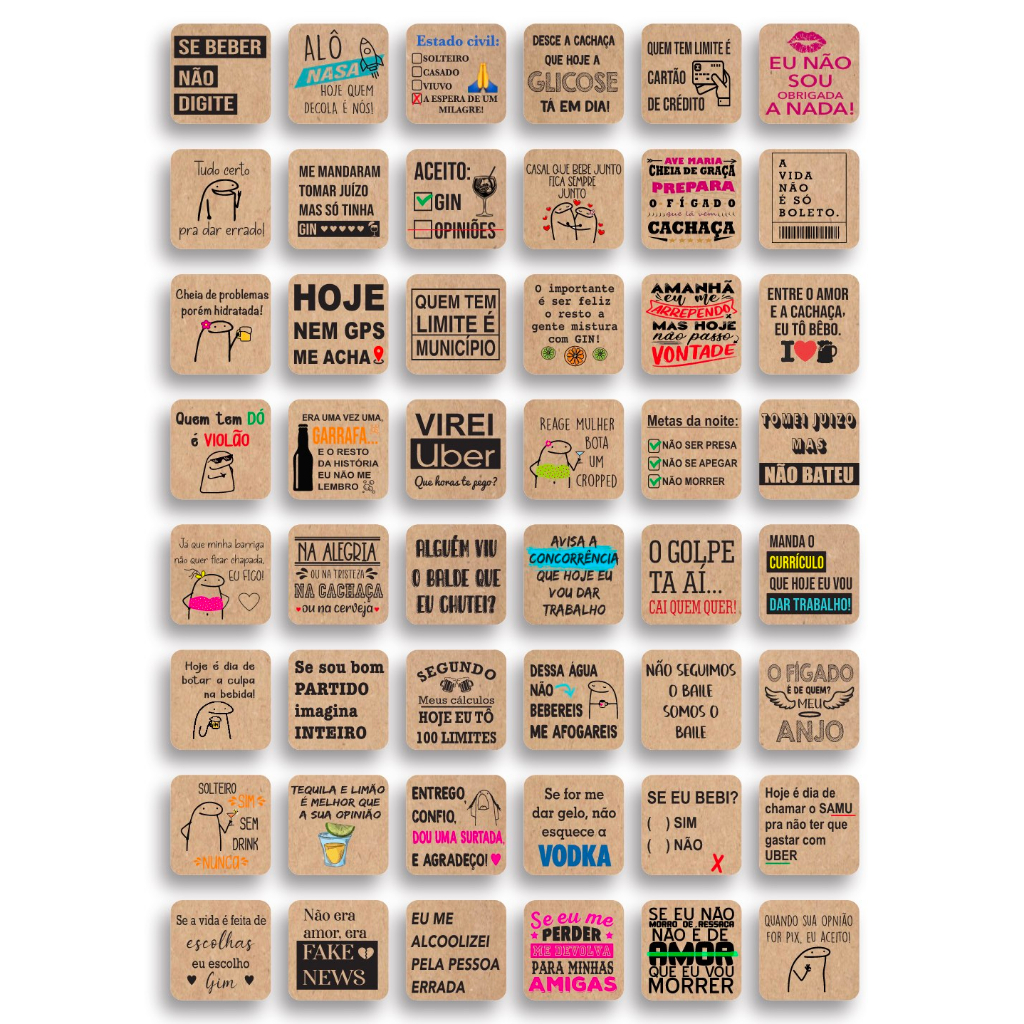 SE BEBER
NÃO
DIGITE
ALÔ
NASA
HOJE QUEM
DECOLA É NÓS!
Estado civil:
SOLTEIRO
CASADO
VIUVO
X A ESPERA DE UM
MILAGRE!
DESCE A CACHAÇA
QUE HOJE A
GLICOSE
TÁ EM DIA!
QUEM TEM LIMITE É
CARTÃO
DE CRÉDITO
EU NÃO
SOU
OBRIGADA
A NADA!
Tudo certo
pra dar errado!
ME MANDARAM
TOMAR JUÍZO
MAS SÓ TINHA
GIN
ACEITO:
GIN
OPINIÕES
CASAL QUE BEBE JUNTO
FICA SEMPRE
JUNTO
AVE MARIA
CHEIA DE GRAÇA
PREPARA
O FÍGADO
que lá vem
CACHAÇA
A
VIDA
NÃO
É SÓ
BOLETO.
Cheia de problemas
porém hidratada!
HOJE
NEM GPS
ME ACHA
QUEM TEM
LIMITE É
MUNICÍPIO
O importante
é ser feliz
o resto a
gente mistura
com GIN!
AMANHÃ
eu me
ARREPENDO
MAS HOJE
não passo
VONTADE
ENTRE O AMOR
E A CACHAÇA,
EU TÔ BÊBO.
I
Quem tem DÓ
é VIOLÃO
ERA UMA VEZ UMA,
GARRAFA...
E O RESTO
DA HISTÓRIA
EU NÃO ME
LEMBRO
VIREI
Uber
Que horas te pego?
REAGE MULHER
BOTA
UM
CROPPED
Metas da noite:
NÃO SER PRESA
NÃO SE APEGAR
NÃO MORRER
TOMEI JUIZO
MAS
NÃO BATEU
Já que minha barriga
não quer ficar chapada,
EU FICO!
NA ALEGRIA
OU NA TRISTEZA
NA CACHAÇA
ou na cerveja
ALGUÉM VIU
O BALDE QUE
EU CHUTEI?
AVISA A
CONCORRÊNCIA
QUE HOJE EU
VOU DAR
TRABALHO
O GOLPE
TA AÍ...
CAI QUEM QUER!
MANDA O
CURRÍCULO
QUE HOJE EU VOU
DAR TRABALHO!
Hoje é dia de
botar a culpa
na bebida!
Se sou bom
PARTIDO
imagina
INTEIRO
SEGUNDO
Meus cálculos
HOJE EU TÔ
100 LIMITES
DESSA ÁGUA
NÃO
BEBEREIS
ME AFOGAREIS
NÃO SEGUIMOS
O BAILE
SOMOS O
BAILE
O FÍGADO
É DE QUEM?
MEU
ANJO
SOLTEIRO
SIM
SEM
DRINK
NUNCA
TEQUILA E LIMÃO
É MELHOR QUE
A SUA OPINIÃO
ENTREGO,
CONFIO,
DOU UMA SURTADA,
E AGRADEÇO!
Se for me
dar gelo, não
esquece a
VODKA
SE EU BEBI?
( ) SIM
( ) NÃO
X
Hoje é dia de
chamar o SAMU
pra não ter que
gastar com
UBER
Se a vida é feita de
escolhas
eu escolho
Gim
Não era
amor, era
FAKE
NEWS
EU ME
ALCOOLIZEI
PELA PESSOA
ERRADA
Se eu me
PERDER
ME DEVOLVA
PARA MINHAS
AMIGAS
SE EU NÃO
MORRO DE RESSACA
NÃO É DE
AMOR
QUE EU VOU
MORRER
QUANDO SUA OPNIÃO
FOR PIX, EU ACEITO!